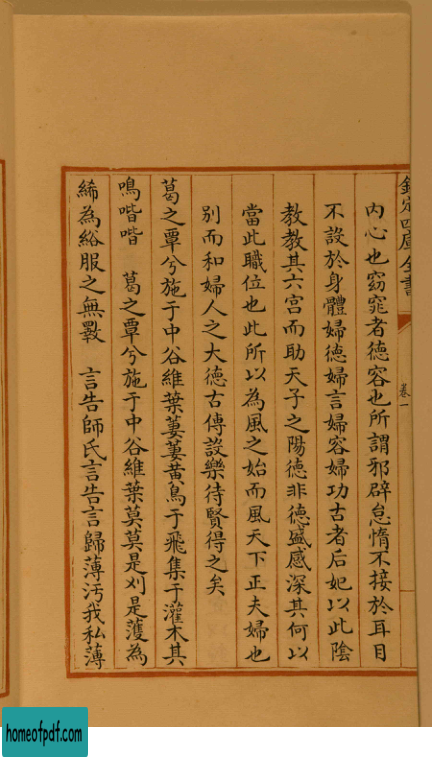 欽定四庫全書
卷一
内心也窈窕者德容也所謂邪辟怠惰不接於耳目
不設於身體婦德婦言婦容婦功古者后妃以此陰
教教其六宮而助天子之陽德非德盛感深其何以
當此職位也此所以為風之始而風天下正夫婦也
别而和婦人之大德古傳設樂待賢得之矣
葛之覃兮施于中谷維葉萋萋黄鳥于飛集于灌木其
鳴喈喈　葛之覃兮施于中谷維葉莫莫是刈是濩為
絺為綌服之無斁　言告師氏言告言歸薄汚我私薄
homeofpdf.com